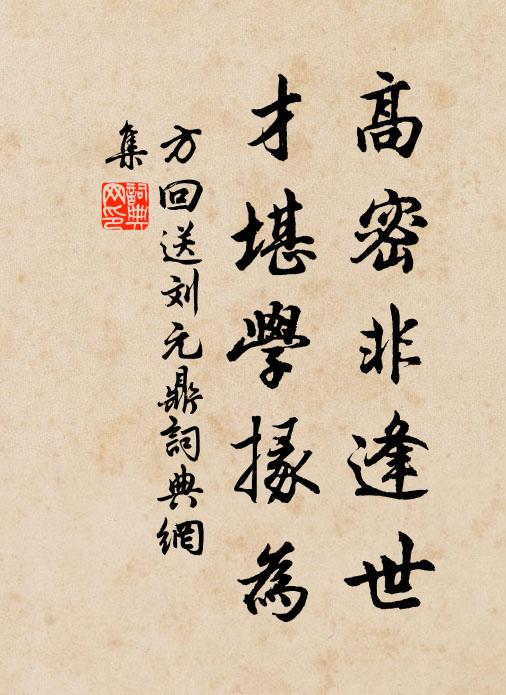 高密非逢世
才堪學掾為
方回送刘元鼎詞典網
集
詞典網印